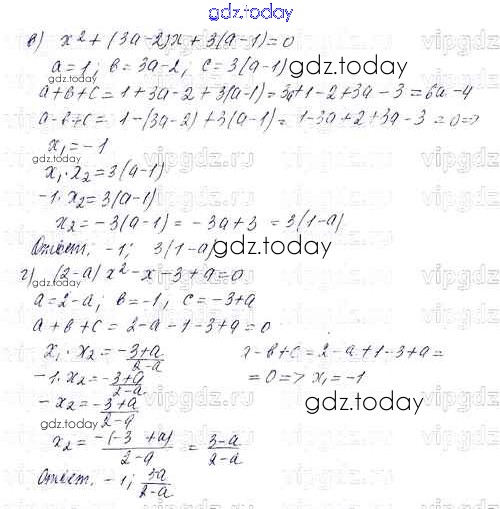 gdz.today
в) x² + (3a-2)x + 3(a-1) = 0
a = 1; в = 3a-2; c = 3(a-1)
gdz.today
a+в+c = 1+3a-2+3(a-1) = 3a+1-2+3a-3 = 6a-4
a-в+c = 1-(3a-2)+3(a-1) = 1-3a+2+3a-3 = 0 =>
x₁ = -1
gdz.today
x₁·x₂ = 3(a-1)
-1·x₂ = 3(a-1)
x₂ = -3(a-1) = -3a+3 = 3(1-a)
Ответ. -1; 3(1-a)
gdz.today
г) (2-a)x² - x - 3 + a = 0
a = 2-a; в = -1; c = -3+a
a+в+c = 2-a-1-3+a = 0
x₁·x₂ = -3+a/2-a
-в+c = 2-a+1-3+a =
-1·x₂ = -3+a/2-a
= 0 => x₁ = -1
-x₂ = -3+a/2-a
gdz.today
x₂ = -(-3+a)/2-a = 3-a/2-a
Ответ. -1; 3a/2-a
gdz.today